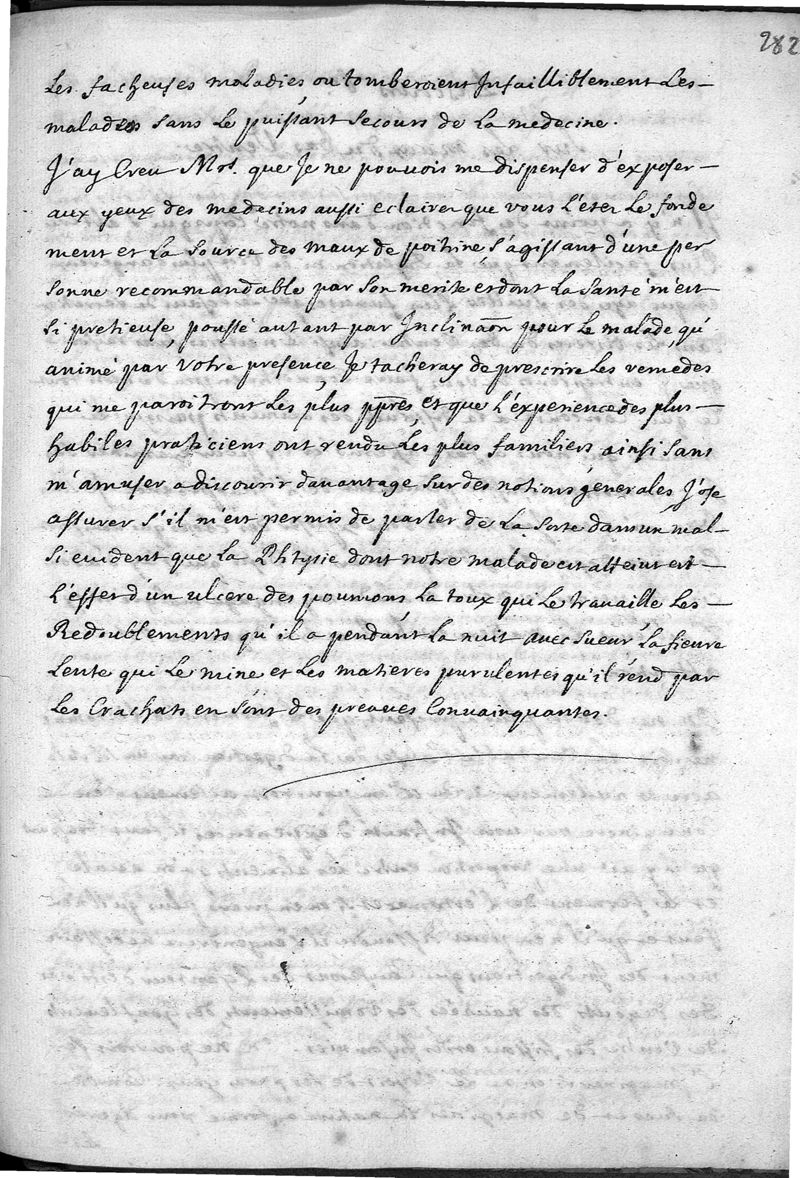 282
Les facheuses maladies ou tomberoient Infailliblement Les
malades sans Le puissant secours de La medecine.
J'ay Creu Mrs. que Je ne pouvois me dispenser d'exposer
aux yeux des medecins aussi eclairer que vous L'eter Le fonde
ment et La source des maux de poitrine, s'agissant d'une per
sonne recommandable par son merite et dont La santé m'est
si pretieuse, poussé autant par Inclinaõn pour Le malade, qu'
animé par votre presence Je tacheray de prescrire Les remedes
qui me paroitront Les plus ppres, et que L'experience des plus
habiles praticiens ont rendu Les plus familiers ainsi sans
m'amuser a discourir davantage sur des notions generales, J'ose
assurer s'il m'est permis de parler de La sorte dans un mal
si evident que La Phtysie dont notre malade est atteint est
L'effet d'un ulcere des poumons, La toux qui Le travaille Les
Redoublements qu'il a pendant La nuit avec sueur, La fievre
Lente qui Le mine et Les matieres purulentes qu'il rend par
Les Crachats en sont des preuves Convainquantes.